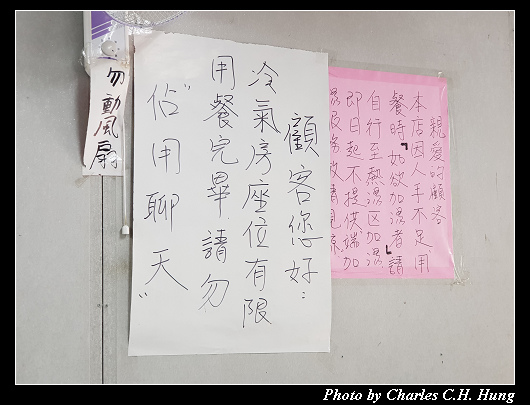 親愛的顧客
本店因人手不足用
餐時「如欲加湯者」請
自行至熱湯区加湯
即日起不提供"端加
湯服務敬請見諒
顧客您好:
冷氣房座位有限
用餐完畢請勿
"佔用聊天"
勿動風扇
Photo by Charles C.H. Hung